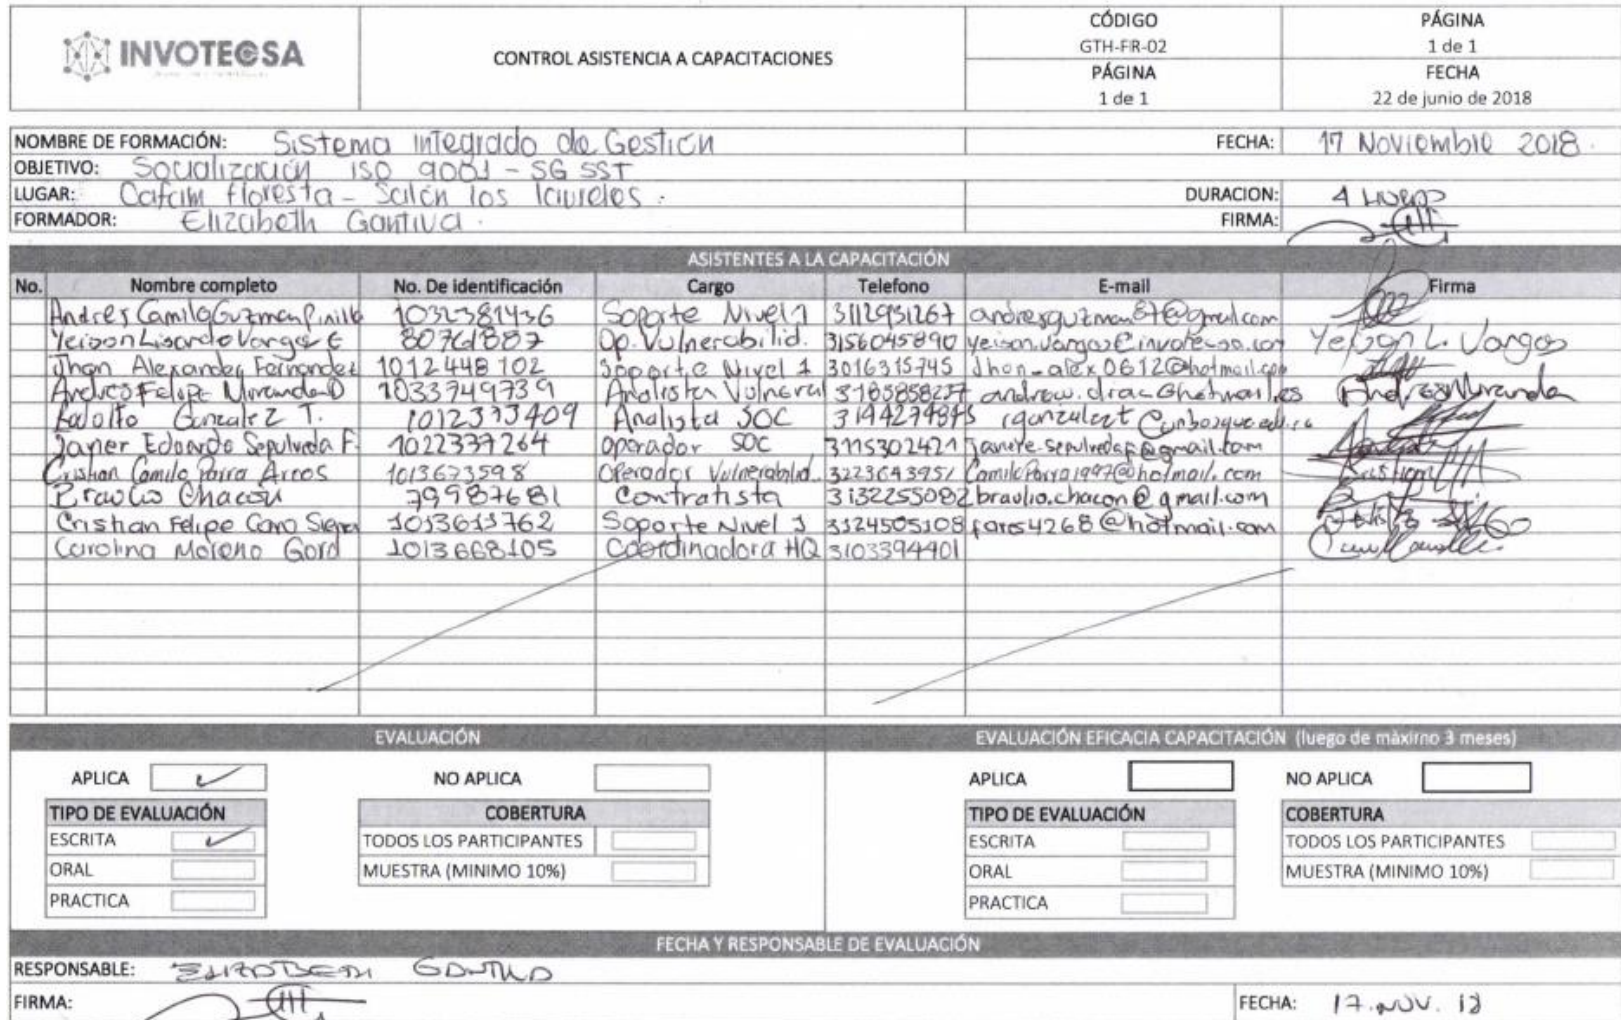 INVOTECSA
CONTROL ASISTENCIA A CAPACITACIONES
CÓDIGO
GTH-FR-02
PÁGINA
1 de 1
PÁGINA
1 de 1
FECHA
22 de junio de 2018
NOMBRE DE FORMACIÓN: Sistema integrado de Gestión FECHA: 17 Noviembre 2018.
OBJETIVO: Socialización ISO 9001 - SG SST
LUGAR: Cafam floresta - Salón los laureles. DURACION: 4 horas
FORMADOR: Elizabeth Gantiva. FIRMA:
ASISTENTES A LA CAPACITACIÓN
No. Nombre completo No. De identificación Cargo Telefono E-mail Firma
Andrés Camilo Guzman Pinilla 1032381436 Soporte Nivel 1 3112931267 andresguzman87@gmail.com
Yeison Lisardo Vargas E 80761887 Op. Vulnerabilid. 3156045890 yeison.vargas@invotecsa.com Yeison L. Vargas
Jhon Alexander Fernandez 1012448102 Soporte Nivel 1 3016315745 Jhon_alex0612@hotmail.com
Andres Felipe Miranda D 1033749739 Analista Vulneral 3185858237 andrew.diac@hotmail.es Andres Miranda
Rodolfo Gonzalez T. 1012373409 Analista SOC rgonzalezt@unbosque.edu.co
Javier Edoardo Sepulveda F. 1022337264 operador SOC 3115302421
Cristian Camilo Parra Arcos 1013623598 Operador Vulnerabilid. 3223643951 CamiloParra1997@hotmail.com Cristian
Braulio Chacon 79987681 Contratista 3132255082 braulio.chacon@gmail.com
Cristhan Felipe Cano 1013613762 Soporte Nivel 1 3124505108 fares4268@hotmail.com
Carolina Moreno Gord 1013668105 Coordinadora HQ 3103394401
EVALUACIÓN
APLICA ✓ NO APLICA
TIPO DE EVALUACIÓN COBERTURA
ESCRITA ✓ TODOS LOS PARTICIPANTES
ORAL MUESTRA (MINIMO 10%)
PRACTICA
EVALUACIÓN EFICACIA CAPACITACIÓN (luego de màximo 3 meses)
APLICA NO APLICA
TIPO DE EVALUACIÓN COBERTURA
ESCRITA TODOS LOS PARTICIPANTES
ORAL MUESTRA (MINIMO 10%)
PRACTICA
FECHA Y RESPONSABLE DE EVALUACIÓN
RESPONSABLE: ELIZABETH GANTIVA
FIRMA: FECHA: 17.NOV.18